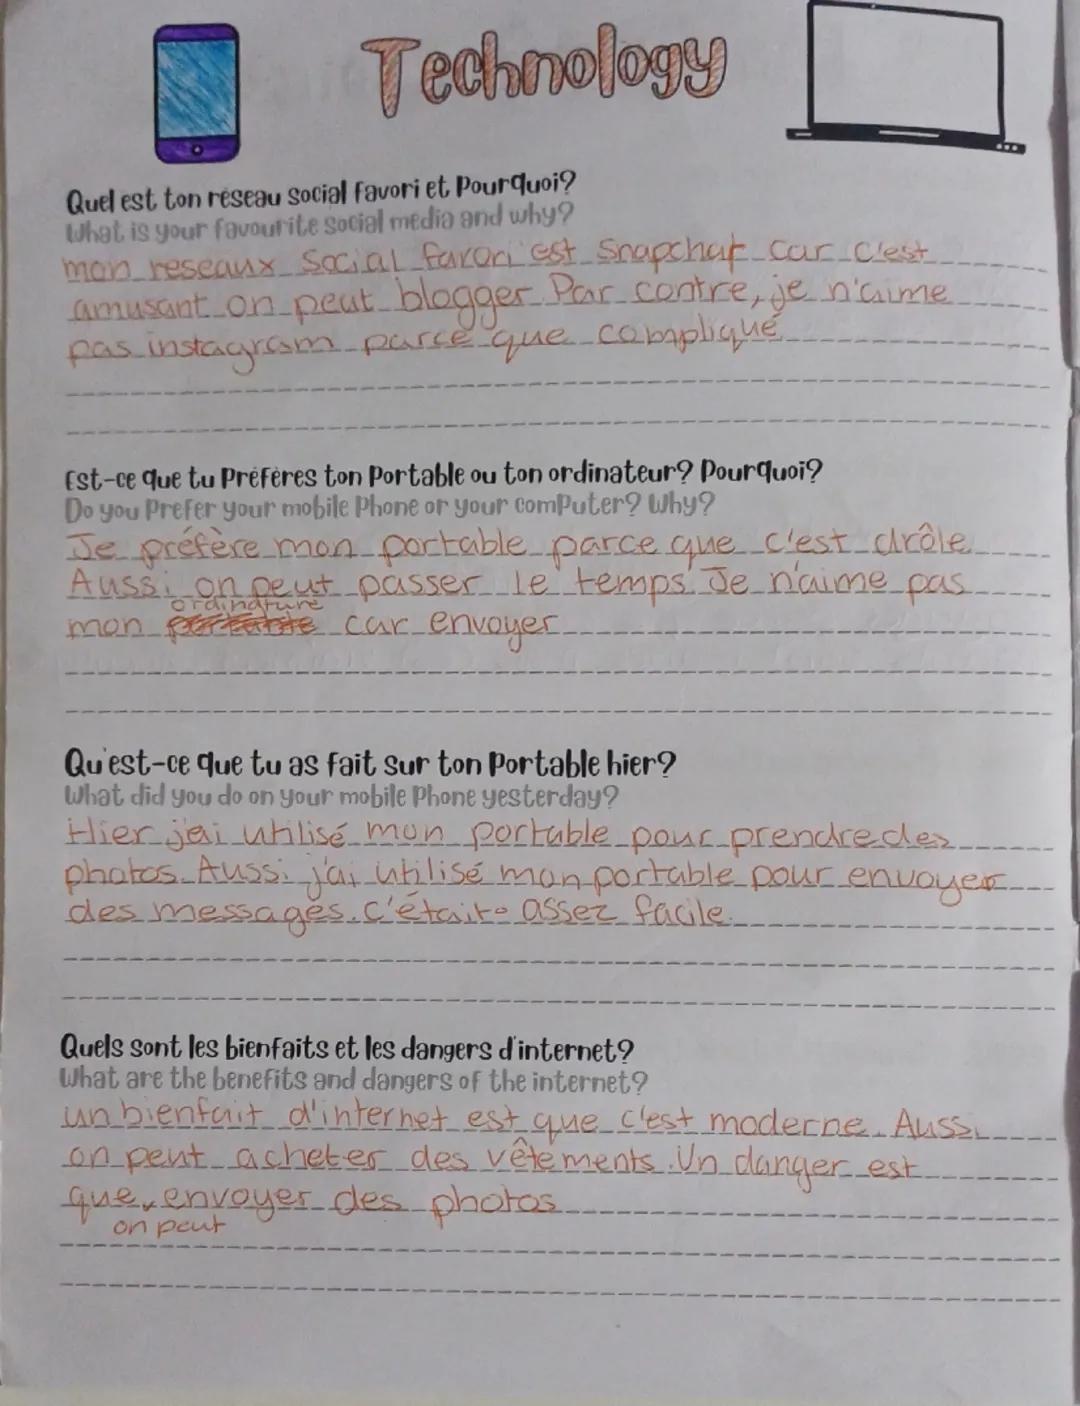 Technology
Quel est ton réseau social favori et Pourquoi?
What is your favourite social media and why?
mon reseaux Social favori est Snapchat car c'est
amusant on peut blogger. Par contre, je n'aime
pas instagram parce que compliqué
Est-ce que tu Préfères ton Portable ou ton ordinateur? Pourquoi?
Do you Prefer your mobile Phone or your computer? Why?
Je préfère mon portable parce que c'est drôle
Aussi on peut passer le temps. Je n'aime pas
ordinature
mon portable car envoyer
Qu'est-ce que tu as fait sur ton Portable hier?
What did you do on your mobile Phone yesterday?
Hier j'ai utilisé mon portable pour prendre des
photos. Aussi j'ai utilisé mon portable pour envoyer
des messages. c'était assez facile.
Quels sont les bienfaits et les dangers d'internet?
What are the benefits and dangers of the internet?
un bienfait d'internet est que c'est moderne. Aussi
on peut acheter des vêtements. Un danger est
que envoyer des photos
on peut